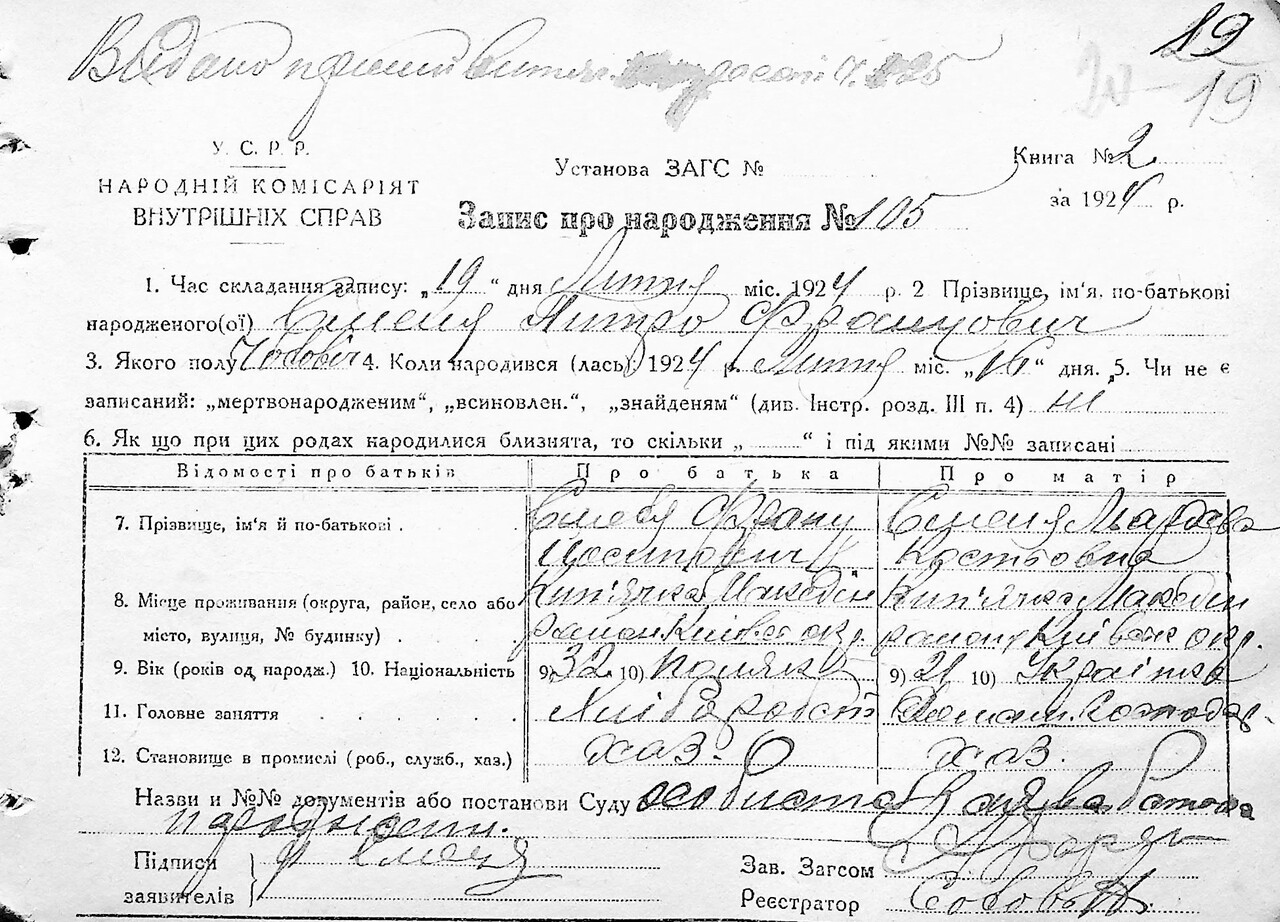 Видано 225
19
19
У. С. Р. Р.
НАРОДНІЙ КОМІСАРІЯТ
ВНУТРІШНІХ СПРАВ
Установа ЗАГС №
Книга № 2
за 1924 р.
Запис про народження № 105
1. Час складання запису: „19“ дня Липня міс. 1924 р. 2 Прізвище, ім'я, по-батькові
народженого(ої) Петро Францович
3. Якого полу Чоловіч 4. Коли народився (лась): 1924 р. Липня міс. „16“ дня. 5. Чи не є
записаний: „мертвонародженим“, „всиновлен.“, „знайденям“ (див. Інстр. розд. III п. 4) ні
6. Як що при цих родах народилися близнята, то скільки „ “ і під якими №№ записані
Відомості про батьків Про батька Про матір
7. Прізвище, ім'я й по-батькові . Франц
Йосипович Костьовна
8. Місце проживання (округа, район, село або
місто, вулиця, № будинку) . район Київск окр. района Київск окр.
9. Вік (років од народж.) 10. Національність 9) 32 10) поляк 9) 21 10) Українка
11. Головне заняття Хлібороб Домаш. Господар.
12. Становище в промислі (роб., служб., хаз.) хаз. хаз.
Назви и №№ документів або постанови Суду особиста заява батька
Підписи
заявителів
Зав. Загсом
Реєстратор